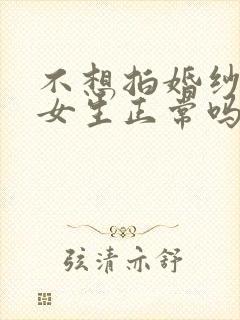 不想拍婚纱
女生正常吗
弦清亦舒